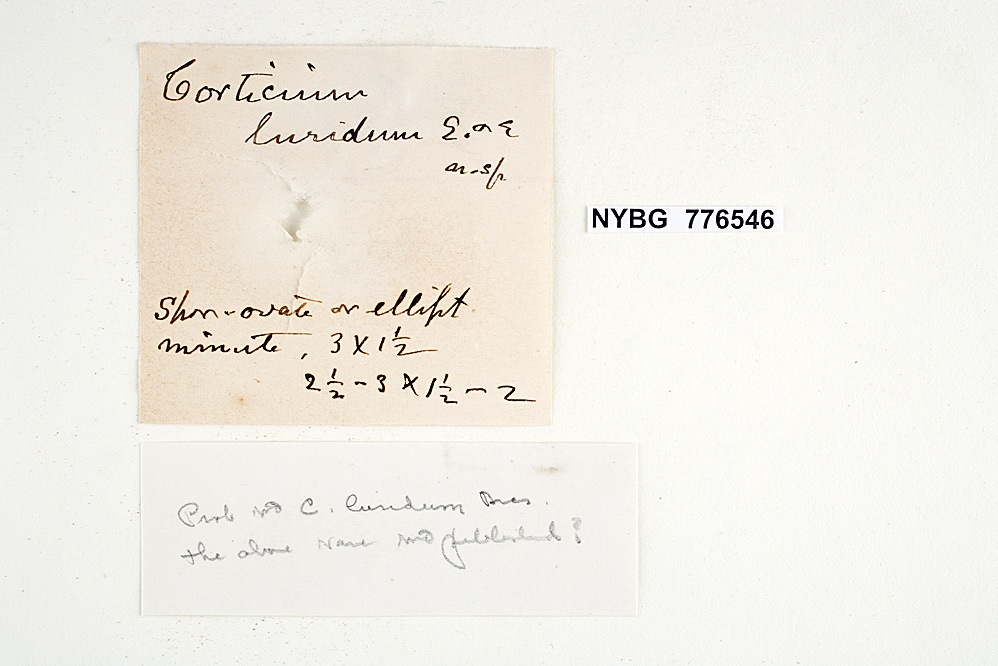 Corticium
luridum E. & E
n. sp.
Spor. ovate or ellipt
minute, 3 X 1½
2½ - 3 X 1½ - 2
NYBG 776546
Prob not C. luridum Bres.
the above Name not published?